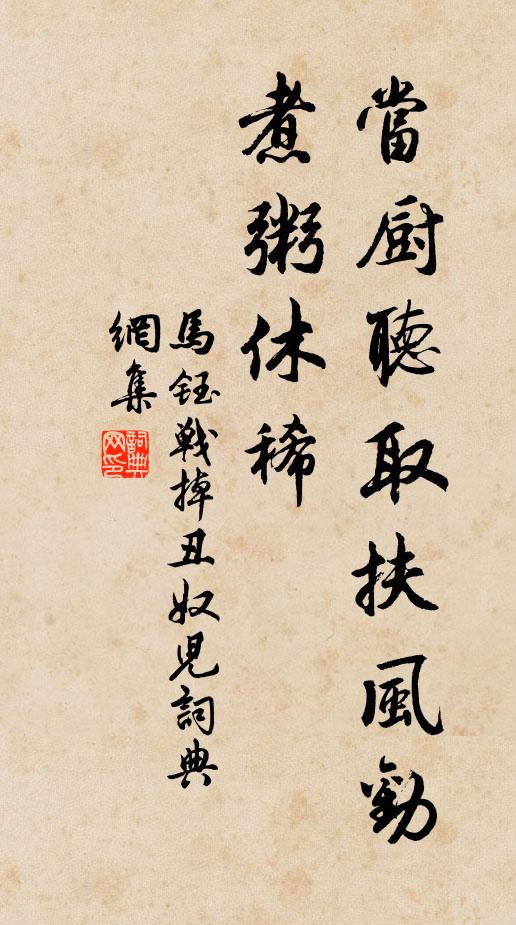 當厨聽取扶風勸
煮粥休稀
馬鈺戰掉丑奴兒詞典
網集
詞典網印